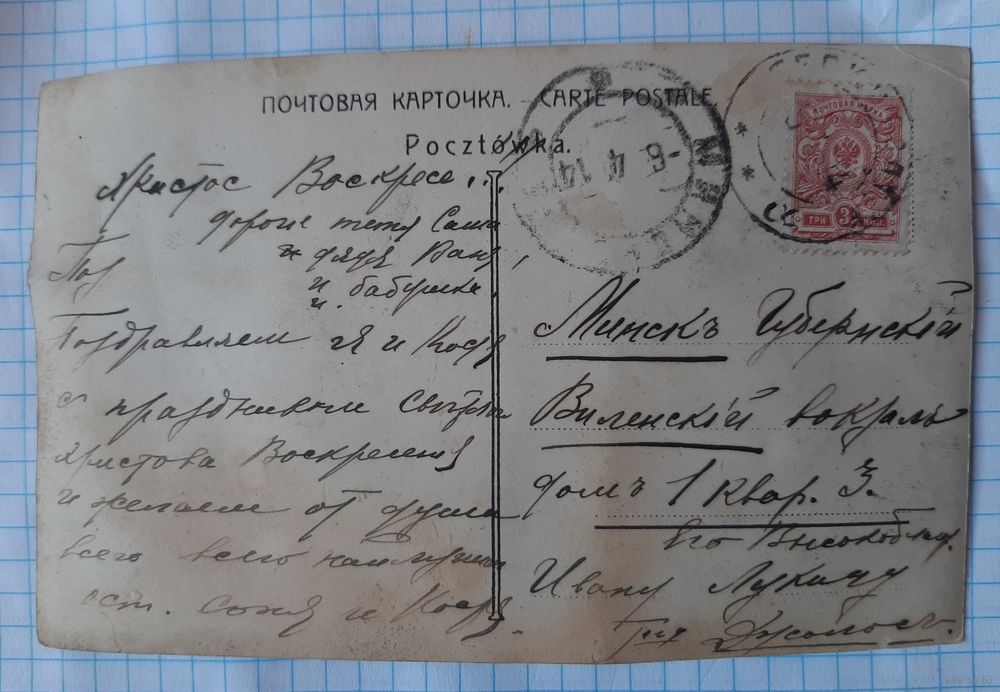 ПОЧТОВАЯ КАРТОЧКА. — CARTE POSTALE.
Pocztówka.
Христос Воскресе...
дорогие тетя Саша
и дядя Ваня,
и бабушка.
Поз
Поздравляем я и Костя
с праздником Светлаго
Христова Воскресения
и желаем от души
всего всего наилучшаго
ост. Соня и Костя.
МИНСК
-8 4 14
ПОЧТОВАЯ МАРКА
ТРИ 3 КОП.
Минскъ Губернскій
Виленскій вокзалъ
домъ 1 квар. 3.
Его Высокоблаг.
Ивану Лукичу